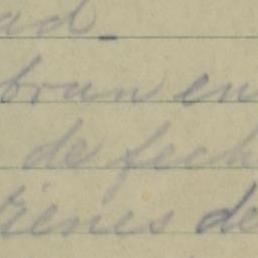 ad_
bran en
de fech
rénis de